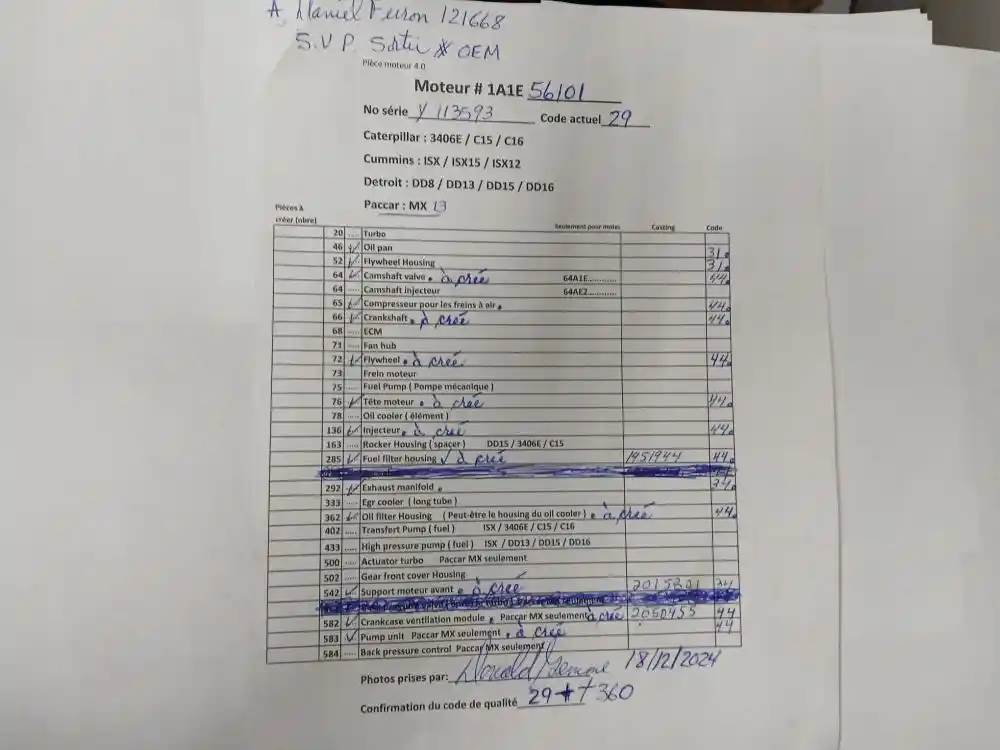 A Daniel
121668
S.V.P. Sortir # OEM
Pièce moteur 4.0
Moteur # 1A1E 56101
No série Y 113593 Code actuel 29
Caterpillar : 3406E / C15 / C16
Cummins : ISX / ISX15 / ISX12
Detroit : DD8 / DD13 / DD15 / DD16
Paccar : MX 13
Pièces à créer (nbre) Seulement pour motes Casting Code
20 ..... Turbo
46 ✓ Oil pan 31.
52 ✓ Flywheel Housing 31.
64 ✓ Camshaft valve . à créé 64A1E............ 44.
64 ..... Camshaft injecteur 64AE2............
65 ✓ Compresseur pour les freins à air . 44.
66 ✓ Crankshaft . à créé 44.
68 ..... ECM
71 ..... Fan hub
72 ✓ Flywheel . à créé 44.
73 ..... Frein moteur
75 ..... Fuel Pump ( Pompe mécanique )
76 ✓ Tête moteur . à créé 44.
78 ..... Oil cooler ( élément )
136 ✓ Injecteur . à créé 44.
163 ..... Rocker Housing ( spacer ) DD15 / 3406E / C15
285 ✓ Fuel filter housing ✓ à créé 1951944 44.
292 ✓ Exhaust manifold .
333 ..... Egr cooler ( long tube )
362 ✓ Oil filter Housing ( Peut-être le housing du oil cooler ) . à créé 44.
402 ..... Transfert Pump ( fuel ) ISX / 3406E / C15 / C16
433 ..... High pressure pump ( fuel ) ISX / DD13 / DD15 / DD16
500 ..... Actuator turbo Paccar MX seulement
502 ..... Gear front cover Housing
542 ✓ Support moteur avant . à créé
582 ✓ Crankcase ventilation module . Paccar MX seulement à créé 2050455 44
583 ✓ Pump unit Paccar MX seulement . à créé 44
584 ..... Back pressure control Paccar MX seulement
Photos prises par: Donald 18/12/2024
Confirmation du code de qualité 29 + 360